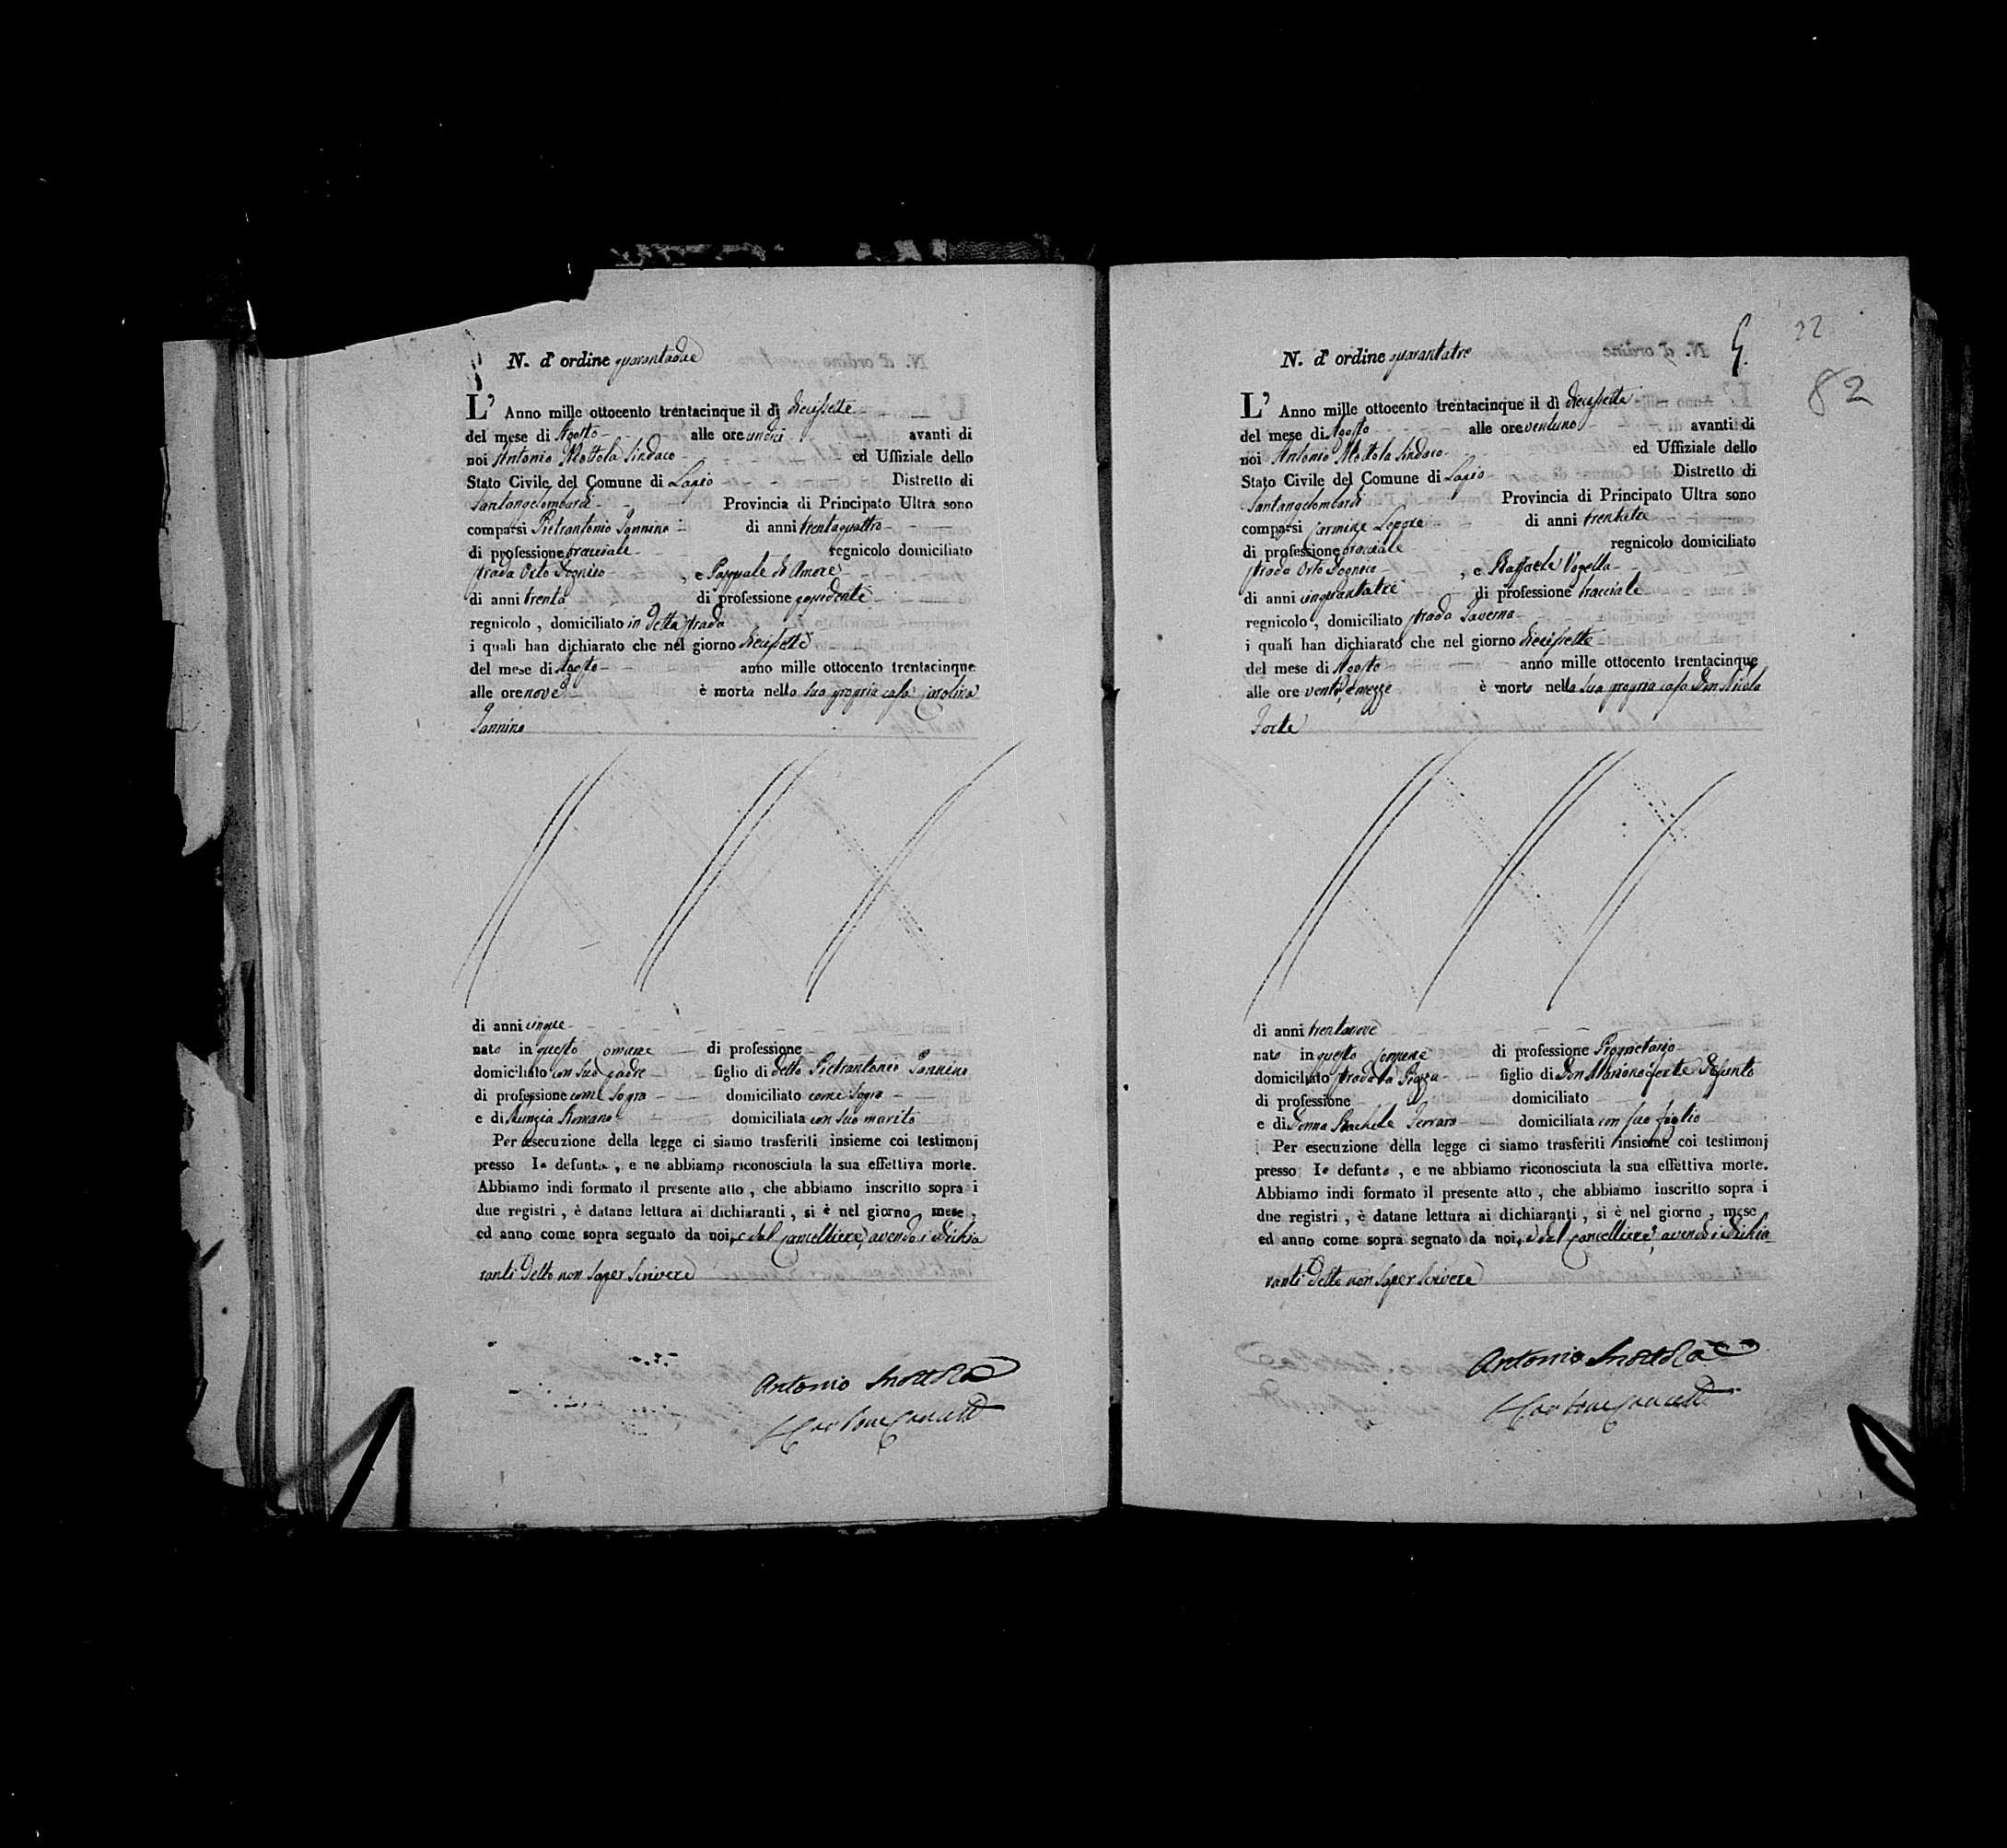 N. d'ordine quarantadue
L' Anno mille ottocento trentacinque il dì diecissette
del mese di Agosto alle ore undici avanti di
noi Antonio Mottola Sindaco ed Uffiziale dello
Stato Civile del Comune di Lapio Distretto di
Santangelombardi Provincia di Principato Ultra sono
comparsi Pietrantonio Jannino di anni trentaquattro
di professione bracciale regnicolo domiciliato
strada Orto , e Pasquale di Amore
di anni trenta di professione possidente
regnicolo , domiciliato in detta strada
i quali han dichiarato che nel giorno diecissette
del mese di Agosto anno mille ottocento trentacinque
alle ore nove è morta nella sua propria casa Carolina
Jannino
di anni cinque
nata in questo Comune di professione
domiciliato con suo padre figlio di detto Pietrantonio Jannino
di professione come sopra domiciliato come sopra
e di Nunzia Romano domiciliata con suo marito
Per esecuzione della legge ci siamo trasferiti insieme coi testimonj
presso la defunta , e ne abbiamo riconosciuta la sua effettiva morte.
Abbiamo indi formato il presente atto , che abbiamo inscritto sopra i
due registri , è datane lettura ai dichiaranti , si è nel giorno , mese ,
ed anno come sopra segnato da noi, e dal Cancelliere, avendo i dichia
ranti detto non saper scrivere
Antonio Mottola
22
82
N. d'ordine quarantatre
L' Anno mille ottocento trentacinque il dì diecissette
del mese di Agosto alle ore ventuno avanti di
noi Antonio Mottola Sindaco ed Uffiziale dello
Stato Civile del Comune di Lapio Distretto di
Santangelombardi Provincia di Principato Ultra sono
comparsi Carmine Lepore di anni trentatre
di professione bracciale regnicolo domiciliato
strada Orto , e Raffaele Vozella
di anni cinquantatre di professione bracciale
regnicolo , domiciliato strada Taverna
i quali han dichiarato che nel giorno diecissette
del mese di Agosto anno mille ottocento trentacinque
alle ore venti, e mezze è morto nella sua propria casa Don Nicola
Forte
di anni trentanove
nato in questo Comune di professione Proprietario
domiciliato strada la Piazza figlio di Don Mariano Forte Defunto
di professione domiciliato
e di Donna Rachele Ferraro domiciliata con suo figlio
Per esecuzione della legge ci siamo trasferiti insieme coi testimonj
presso lo defunto , e ne abbiamo riconosciuta la sua effettiva morte.
Abbiamo indi formato il presente atto , che abbiamo inscritto sopra i
due registri , è datane lettura ai dichiaranti , si è nel giorno , mese
ed anno come sopra segnato da noi, e dal Cancelliere, avendo i dichia
ranti detto non saper scrivere
Antonio Mottola